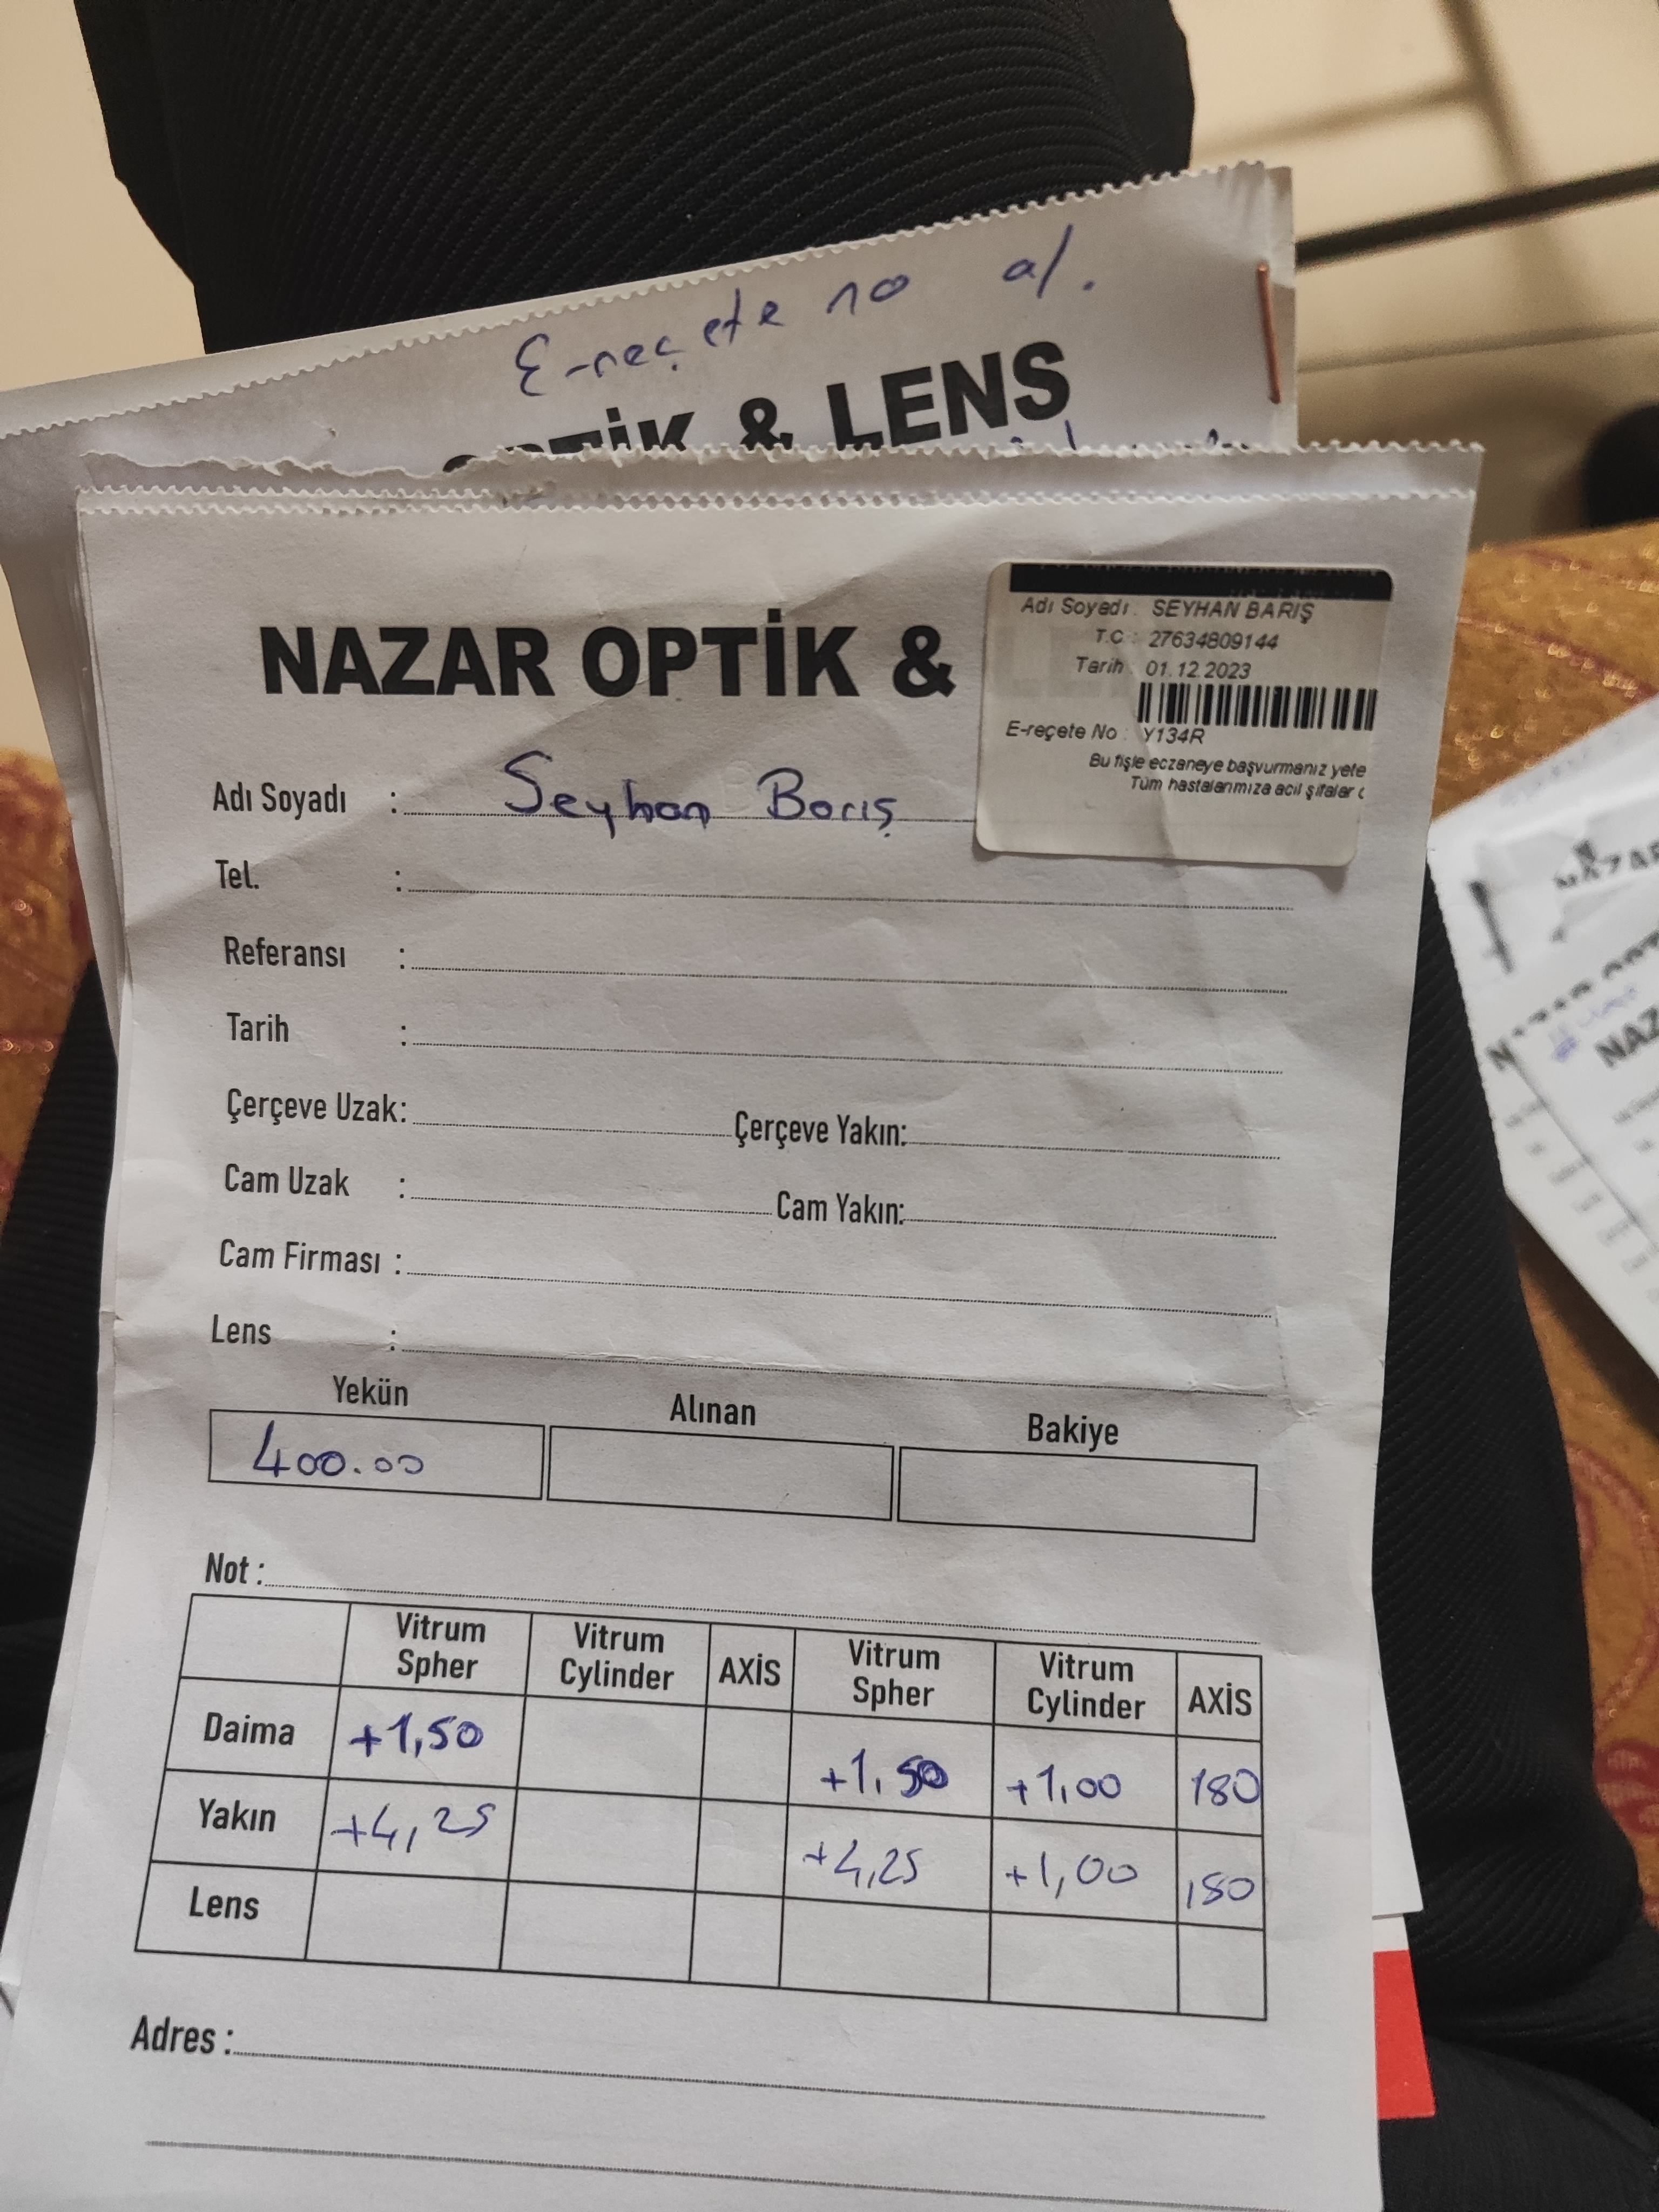 E-reçete no al.
OPTİK & LENS
NAZAR OPTİK &
Adı Soyadı : SEYHAN BARIŞ
T.C : 27634809144
Tarih : 01.12.2023
E-reçete No : Y134R
Bu fişle eczaneye başvurmanız yete
Tüm hastalarımıza acil şifalar
Adı Soyadı : Seyhan Barış
Tel. :
Referansı :
Tarih :
Çerçeve Uzak: Çerçeve Yakın:
Cam Uzak : Cam Yakın:
Cam Firması :
Lens :
Yekün Alınan Bakiye
400.00
Not :
Vitrum Spher Vitrum Cylinder AXİS Vitrum Spher Vitrum Cylinder AXİS
Daima +1,50 +1,50 +1,00 180
Yakın +4,25 +4,25 +1,00 180
Lens
Adres :
NAZAR
NAZ